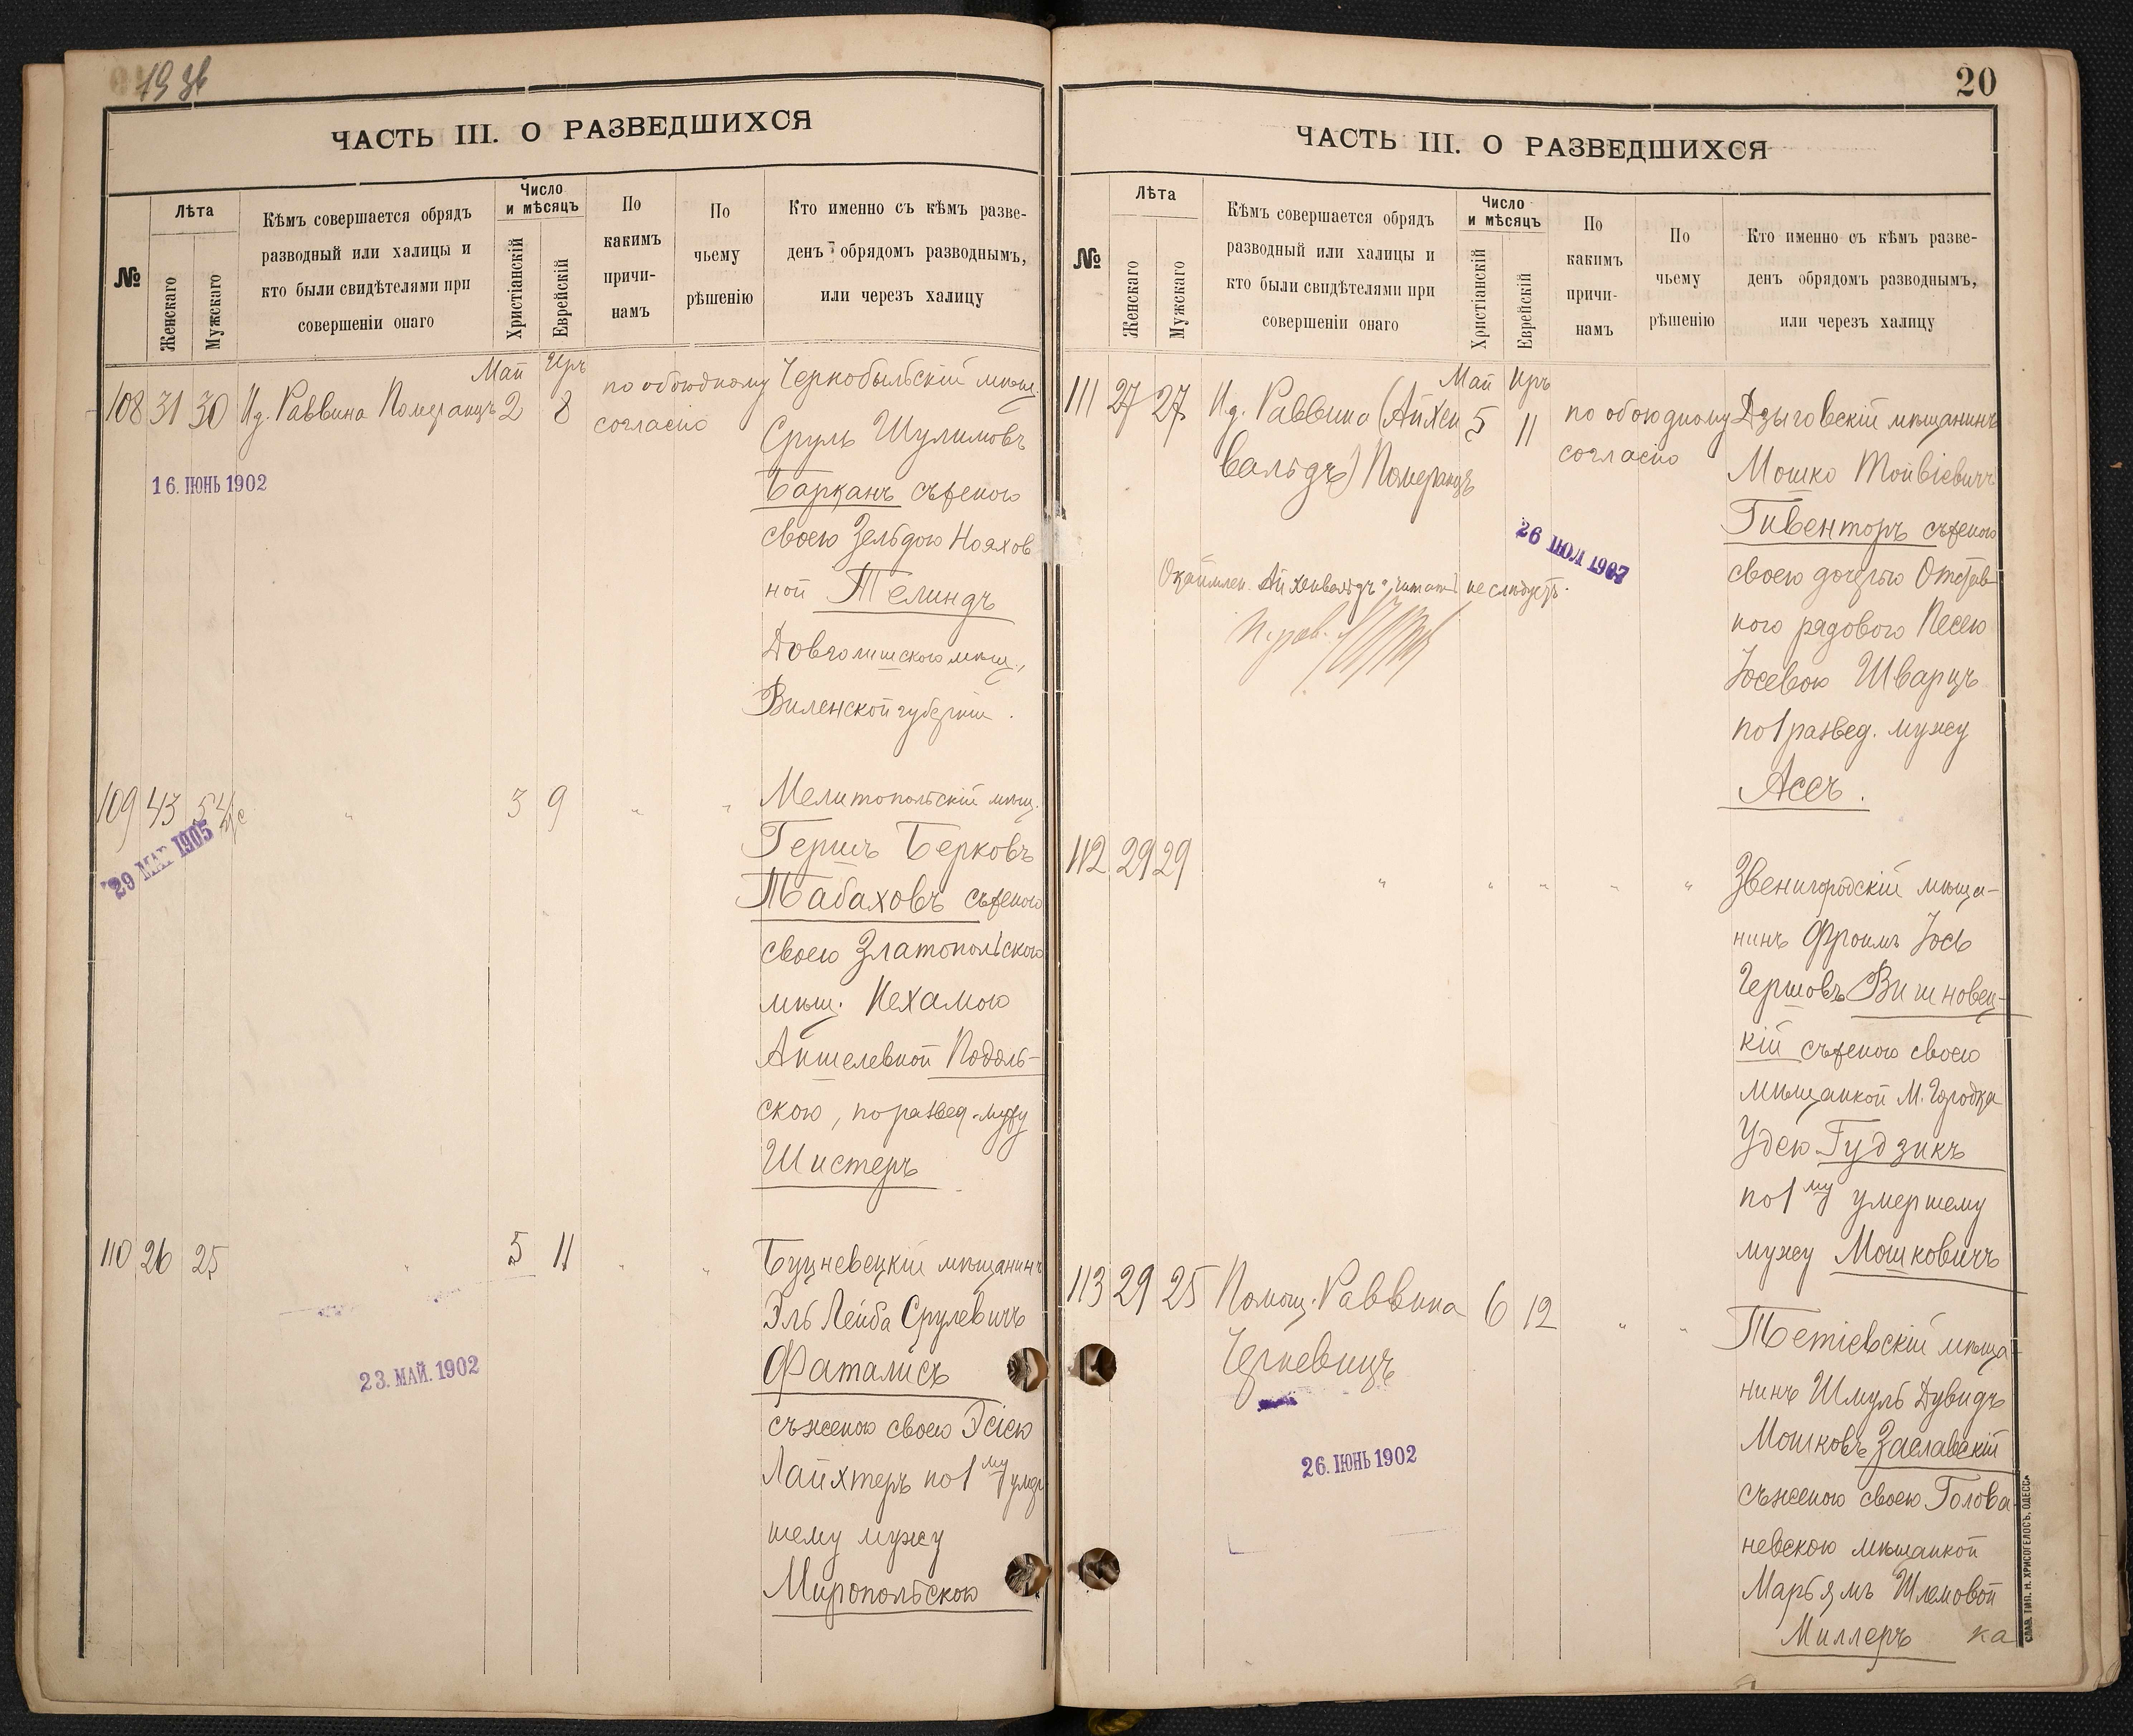 ЧАСТЬ III. О РАЗВЕДШИХСЯ
№
Лѣта
Женскаго
Мужскаго
Кѣмъ совершается обрядъ
разводный или халицы и
кто были свидѣтелями при
совершеніи онаго
Число
и мѣсяцъ
Христіанскій
Еврейскій
По
какимъ
причи-
намъ
По
чьему
рѣшенію
Кто именно съ кѣмъ разве-
денъ обрядомъ разводнымъ,
или черезъ халицу
Май Иръ
108 31 30 И.д. Раввина Померанцъ 2 8 по обоюдному
согласію
Чернобыльскій мѣщ.
Сруль Шулимовъ
Барканъ съ женою
своею Зельдою Нояхов
ной Телиндъ
мѣщ.,
Виленской губерніи.
16. ІЮНЬ 1902
109 43 54 " 3 9 " "
Мелитопольскій мѣщ.
Гершъ Берковъ
Табаховъ съ женою
своею Златопольскою
мѣщ. Нехамою
Аншелевной Подоль-
скою, по развед. мужу
Шистеръ
29 МАР 1905
110 26 25 " 5 11 " "
Буцневецкій мѣщанинъ
Эль Лейба Срулевичъ
Фаталисъ
съ женою своею Эсіею
Лайхтеръ по 1му умер
шему мужу
Миропольскою
23. МАЙ. 1902
20
ЧАСТЬ III. О РАЗВЕДШИХСЯ
№
Лѣта
Женскаго
Мужскаго
Кѣмъ совершается обрядъ
разводный или халицы и
кто были свидѣтелями при
совершеніи онаго
Число
и мѣсяцъ
Христіанскій
Еврейскій
По
какимъ
причи-
намъ
По
чьему
рѣшенію
Кто именно съ кѣмъ разве-
денъ обрядомъ разводнымъ,
или черезъ халицу
Май Иръ
111 27 27 И.д. Раввина (Айхен
вальдъ) Померанцъ
5 11 по обоюдному
согласію
Дзыговскій мѣщанинъ
Мошко Тойвіевичъ
Гивенторъ съ женою
своею дочерью Отстав
ного рядового Песею
Іосевою Шварцъ
по 1 развед. мужу
Ассъ.
26 ІЮЛ 1907
Айхенвальдъ" читать не слѣдуетъ.
112 29 29 " " " " "
Звенигородскій мѣща-
нинъ Фроимъ Іось
Гершовъ Вишновец-
кій съ женою своею
мѣщанкой М. Городка
Удею Гудзикъ
по 1му умершему
мужу Мошковичъ
113 29 25 Помощ. Раввина
6 12 " "
Тетіевскій мѣща-
нинъ Шмуль Дувидъ
Мошковъ Заславскій
съ женою своею Голова
невскою мѣщанкой
Марьямъ Шлемовой
Миллеръ
26. ІЮНЬ 1902
СЛАВ. ТИП. Н. ХРИСОГЕЛОСЪ, ОДЕССА